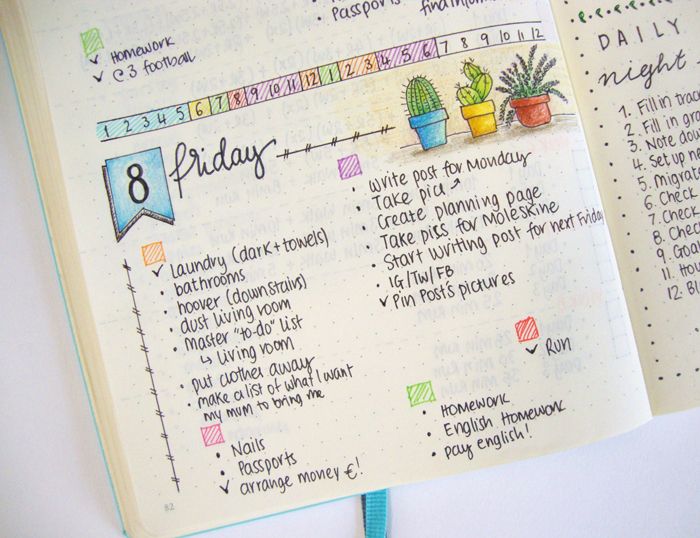 Passports
Homework
✓ C3 football
1 2 3 4 5 6 7 8 9 10 11 12 1 2 3 4 5 6 7 8 9 10 11 12
8 friday
✓ Laundry (dark + towels)
• bathrooms
• hoover (downstairs)
• dust living room
• Master "to-do" list
↳ Living room
• put clothes away
• make a list of what I want
my mum to bring me
• Nails
• Passports
✓ arrange money €!
82
• write post for Monday
• Take pics ↗
• Create planning page
• Take pics for Moleskine
• Start writing post for next Friday
• IG/TW/FB
✓ Pin Post's pictures
✓ Run
• Homework
• English Homework
• pay english!
DAILY
night
1. Fill in
2. Fill in
3. Note
4. Set up
5. Migrate
6. Check
7. Check
8. Check
9.
10.
11.
12.